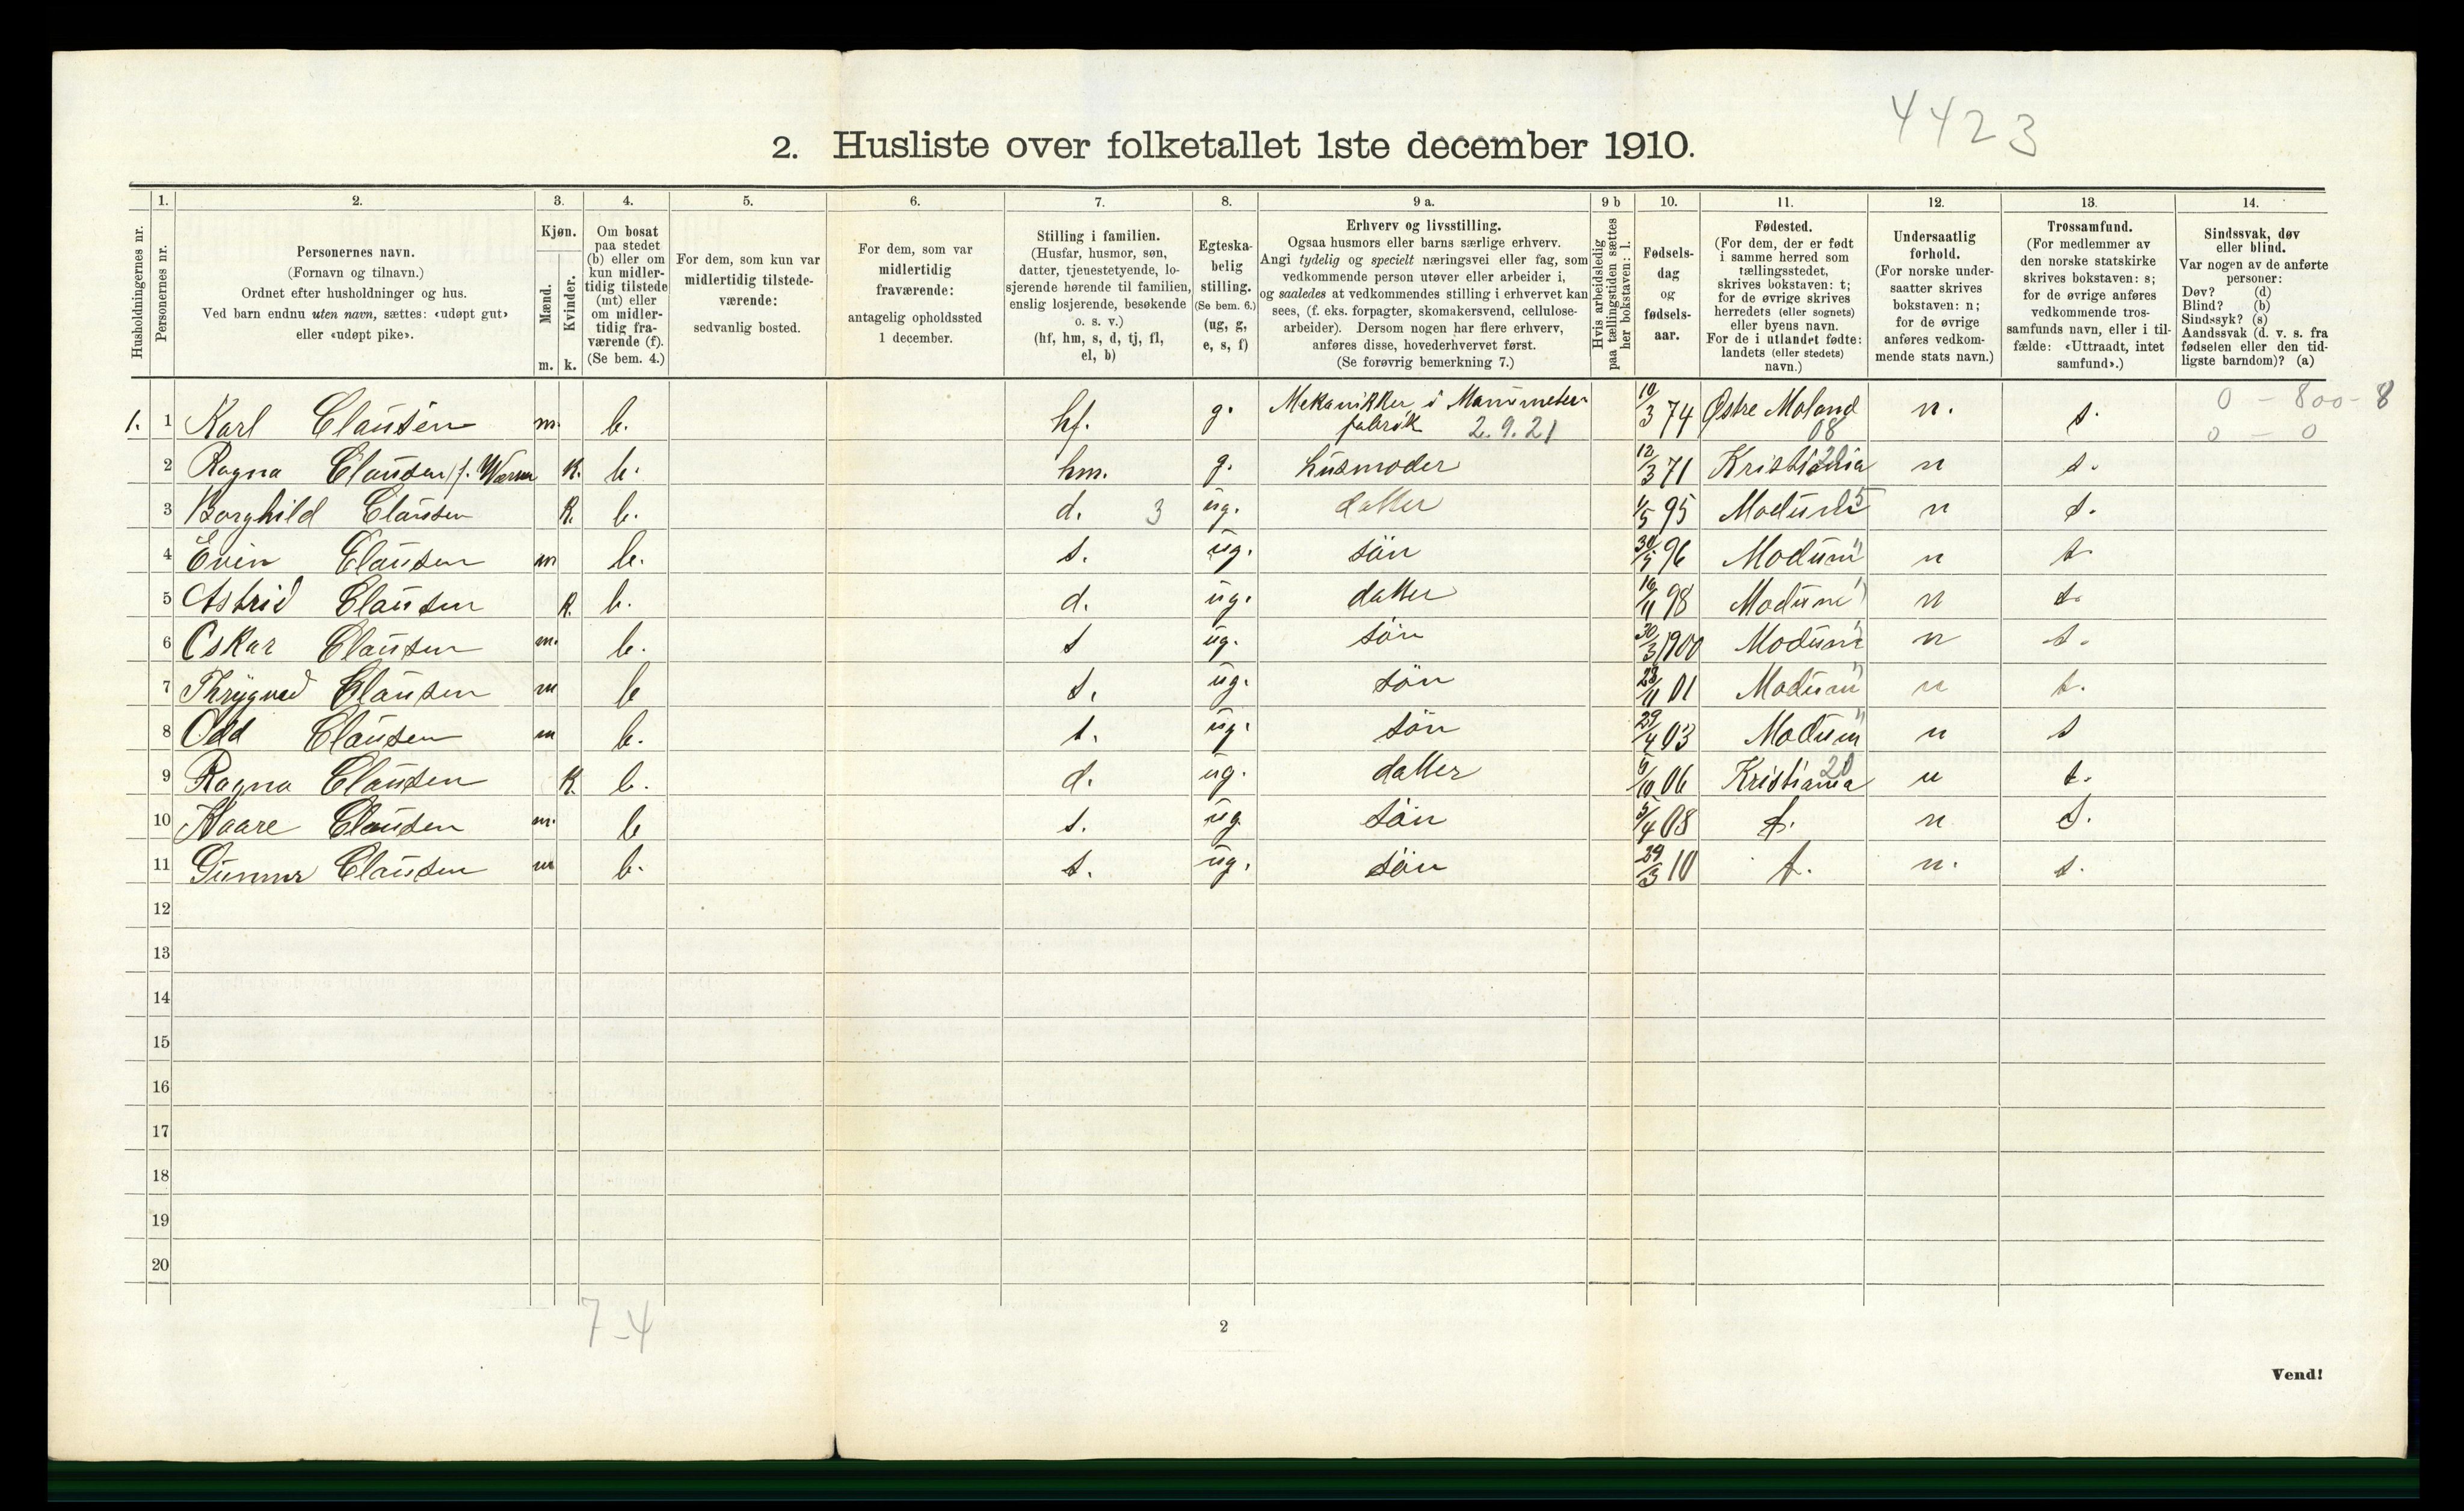 4423
2. Husliste over folketallet 1ste december 1910.
1. 2. 3. 4. 5. 6. 7. 8. 9 a. 9 b 10. 11. 12. 13. 14.
Husholdningernes nr.
Personernes nr.
Personernes navn.
(Fornavn og tilnavn.)
Ordnet efter husholdninger og hus.
Ved barn endnu uten navn, sættes: «udøpt gut»
eller «udøpt pike».
Kjøn.
Mænd.
Kvinder.
m. k.
Om bosat
paa stedet
(b) eller om
kun midler-
tidig tilstede
(mt) eller
om midler-
tidig fra-
værende (f).
(Se bem. 4.)
For dem, som kun var
midlertidig tilstede-
værende:
sedvanlig bosted.
For dem, som var
midlertidig
fraværende:
antagelig opholdssted
1 december.
Stilling i familien.
(Husfar, husmor, søn,
datter, tjenestetyende, lo-
sjerende hørende til familien,
enslig losjerende, besøkende
o. s. v.)
(hf, hm, s, d, tj, fl,
el, b)
Egteska-
belig
stilling.
(Se bem. 6.)
(ug, g,
e, s, f)
Erhverv og livsstilling.
Ogsaa husmors eller barns særlige erhverv.
Angi tydelig og specielt næringsvei eller fag, som
vedkommende person utøver eller arbeider i,
og saaledes at vedkommendes stilling i erhvervet kan
sees, (f. eks. forpagter, skomakersvend, cellulose-
arbeider). Dersom nogen har flere erhverv,
anføres disse, hovederhvervet først.
(Se forøvrig bemerkning 7.)
Hvis arbeidsledig
paa tællingstiden sættes
her bokstaven: l.
Fødsels-
dag
og
fødsels-
aar.
Fødested.
(For dem, der er født
i samme herred som
tællingsstedet,
skrives bokstaven: t;
for de øvrige skrives
herredets (eller sognets)
eller byens navn.
For de i utlandet fødte:
landets (eller stedets)
navn.)
Undersaatlig
forhold.
(For norske under-
saatter skrives
bokstaven: n;
for de øvrige
anføres vedkom-
mende stats navn.)
Trossamfund.
(For medlemmer av
den norske statskirke
skrives bokstaven: s;
for de øvrige anføres
vedkommende tros-
samfunds navn, eller i til-
fælde: «Uttraadt, intet
samfund».)
Sindssvak, døv
eller blind.
Var nogen av de anførte
personer:
Døv? (d)
Blind? (b)
Sindssyk? (s)
Aandssvak (d. v. s. fra
fødselen eller den tid-
ligste barndom)? (a)
1. 1 Karl Clausen m. b. hf. g. Mekanikker i Manometer- 10/3 74 Østre Moland n. s. 0 - 800 - 8
fabrik 2.9.21 08 0 - 0
2 Ragna Clausen f. K. b. hm. g. husmoder 12/3 71 Kristiania 20 n s.
3 Borghild Clausen K. b. d. 3 ug. datter 1/5 95 Modum n s.
4 Evin Clausen m b. s. ug. søn 30/5 96 Modum " n s.
5 Astrid Clausen K. b. d. ug. datter 16/11 98 Modum " n s.
6 Oskar Clausen m. b. s ug. søn 30/3 1900 Modum " n s.
7 Thrygved Clausen m b s. ug. søn 23/11 01 Modum " n s.
8 Odd Clausen m b. s. ug. søn 29/4 03 Modum " n s
9 Ragna Clausen K. b. d. ug. datter 9/10 06 Kristiania 20 n s.
10 Kaare Clausen m. b s. ug søn 5/4 08 t. n s.
11 Gunnar Clausen m b. s. ug. søn 29/3 10 t. n. s.
12
13
14
15
16
17
18
19
20
7-4
2
Vend!